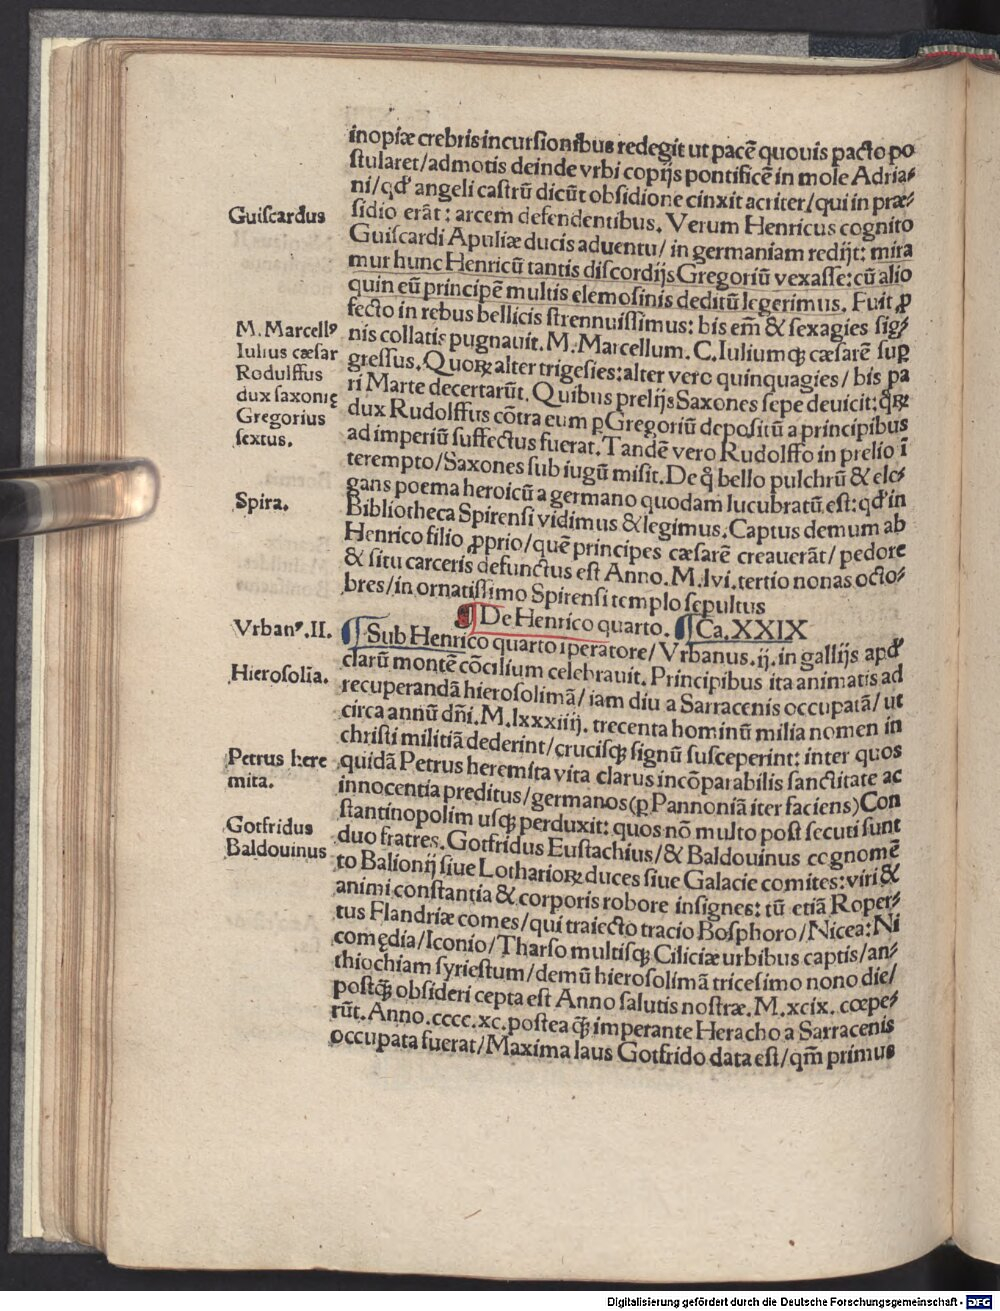 inopiæ crebris incursionibus redegit ut pacē quouis pacto po
ſtularet/admotis deinde vrbi copijs pontificē in mole Adria⸗
ni/qđ angeli caſtrū dicūt obſidione cinxit acriter/qui in præ⸗
ſidio erāt: arcem defendentibus. Verum Henricus cognito
Guiſcardus
Guiſcardi Apuliæ ducis aduentu/ in germaniam redijt: mira
mur hunc Henricū tantis diſcordijs Gregoriū vexaſſe: cū alio
quin eū principē multis elemoſinis deditū legerimus. Fuit ꝓ
fecto in rebus bellicis ſtrennuiſſimus: bis em̄ & ſexagies ſig⸗
nis collatis pugnauit. M. Marcellum. C. Iulium qꝫ cæſarē ſup
M. Marcellꝰ
Iulius cæſar
Rodulffus
dux ſaxonię
Gregorius
ſextus.
greſſus. Quoꝝ alter trigeſies: alter vero quinquagies/ bis pa
ri Marte decertarūt. Quibus prelijs Saxones ſepe deuicit: qꝝ
dux Rudolffus cōtra eum ꝑ Gregoriū depoſitū a principibus
ad imperiū ſuffectus fuerat. Tandē vero Rudolffo in prelio ī
terempto/Saxones ſub iugū miſit. De q̊ bello pulchrū & ele⸗
gans poema heroicū a germano quodam lucubratū eſt: qđ in
Spira.
Bibliotheca Spirenſi vidimus & legimus. Captus demum ab
Henrico filio ꝓprio/quē principes cæſarē creauerāt/ pedore
& ſitu carceris defunctus eſt Anno. M. lvi. tertio nonas octo⸗
bres/in ornatiſſimo Spirenſi templo ſepultus
¶ De Henrico quarto. ¶ Ca. XXIX
Vrbanꝰ. II.
¶ Sub Henrico quarto īperatore/ Vrbanus. ij. in gallijs apđ
clarū montē cōcilium celebrauit. Principibus ita animatis ad
Hieroſolīa.
recuperandā hieroſolimā/ iam diu a Sarracenis occupatā/ ut
circa annū dñi. M. lxxxiiij. trecenta hominū milia nomen in
chriſti militiā dederint/ cruciſqꝫ ſignū ſuſceperint: inter quos
Petrus here
mita.
quidā Petrus heremita vita clarus incōparabilis ſanctitate ac
innocentia preditus/ germanos (ꝑ Pannoniā iter faciens) Con
ſtantinopolim uſqꝫ perduxit: quos nō multo poſt ſecuti ſunt
Gotfridus
Baldouinus
duo fratres. Gotfridus Euſtachius/ & Baldouinus cognomē
to Balionij ſiue Lotharioꝝ duces ſiue Galacie comites: viri &
animi conſtantia & corporis robore inſignes: tū etiā Roper⸗
tus Flandriæ comes/ qui traiecto tracio Boſphoro/ Nicea: Ni
comędia/ Iconio/ Tharſo multiſqꝫ Ciliciæ urbibus captis/ an⸗
thiochiam ſyrieſtum/ demū hieroſolimā triceſimo nono die/
poſtqꝫ̄ obſideri cepta eſt Anno ſalutis noſtræ. M. xcix. cœpe⸗
rūt. Anno. cccc. xc. poſtea qꝫ̄ imperante Heracho a Sarracenis
occupata fuerat/ Maxima laus Gotfrido data eſt/ qm̄ primus
Digitalisierung gefördert durch die Deutsche Forschungsgemeinschaft - DFG